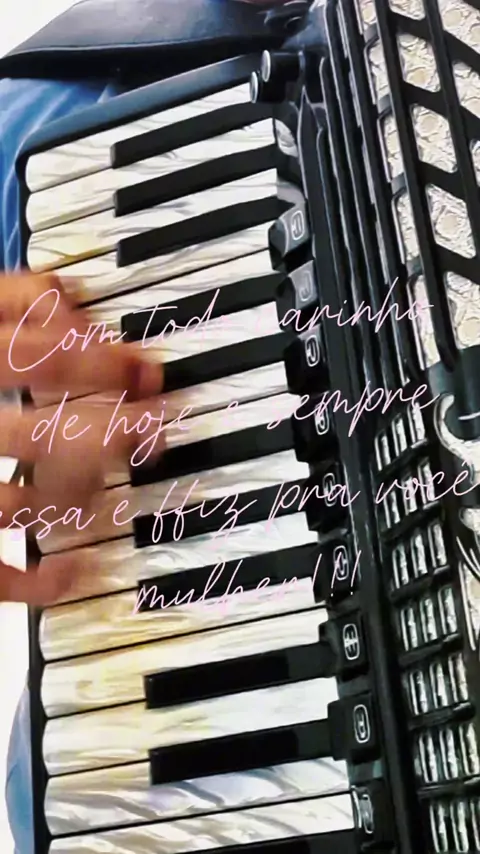 Com todo carinho
de hoje e sempre
essa e ffiz pra você
mulher!!!